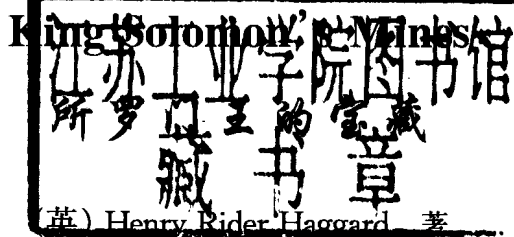 King Solomon's Mines
江苏工业学院图书馆
所罗门王的宝藏
藏书章
(英) Henry Rider Haggard 著